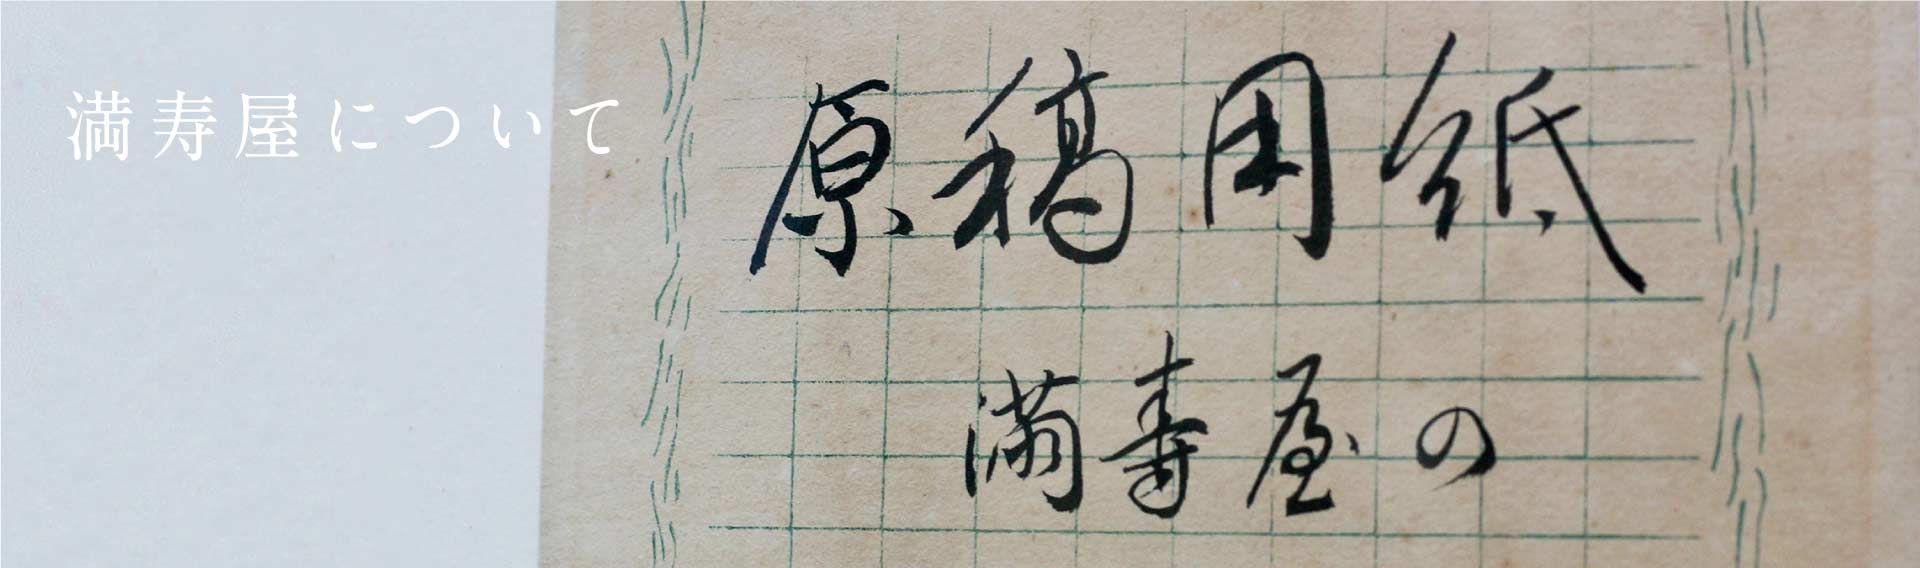 満寿屋について
原稿用紙
満寿屋の